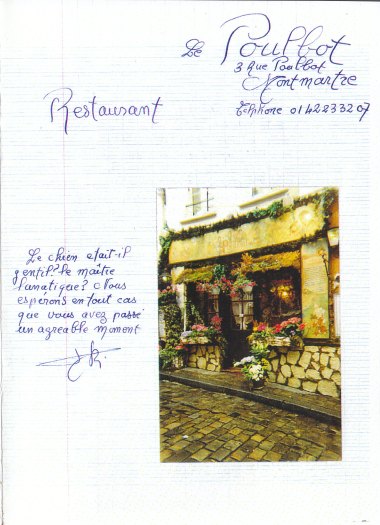 Le Poulbot
3 Rue Poulbot
Montmartre
Telphone 01 42 23 32 07
Restaurant
Le chien etait-il
gentil? le maître
lunatique? Nous
esperons en tout cas
que vous avez passé
un agreable moment